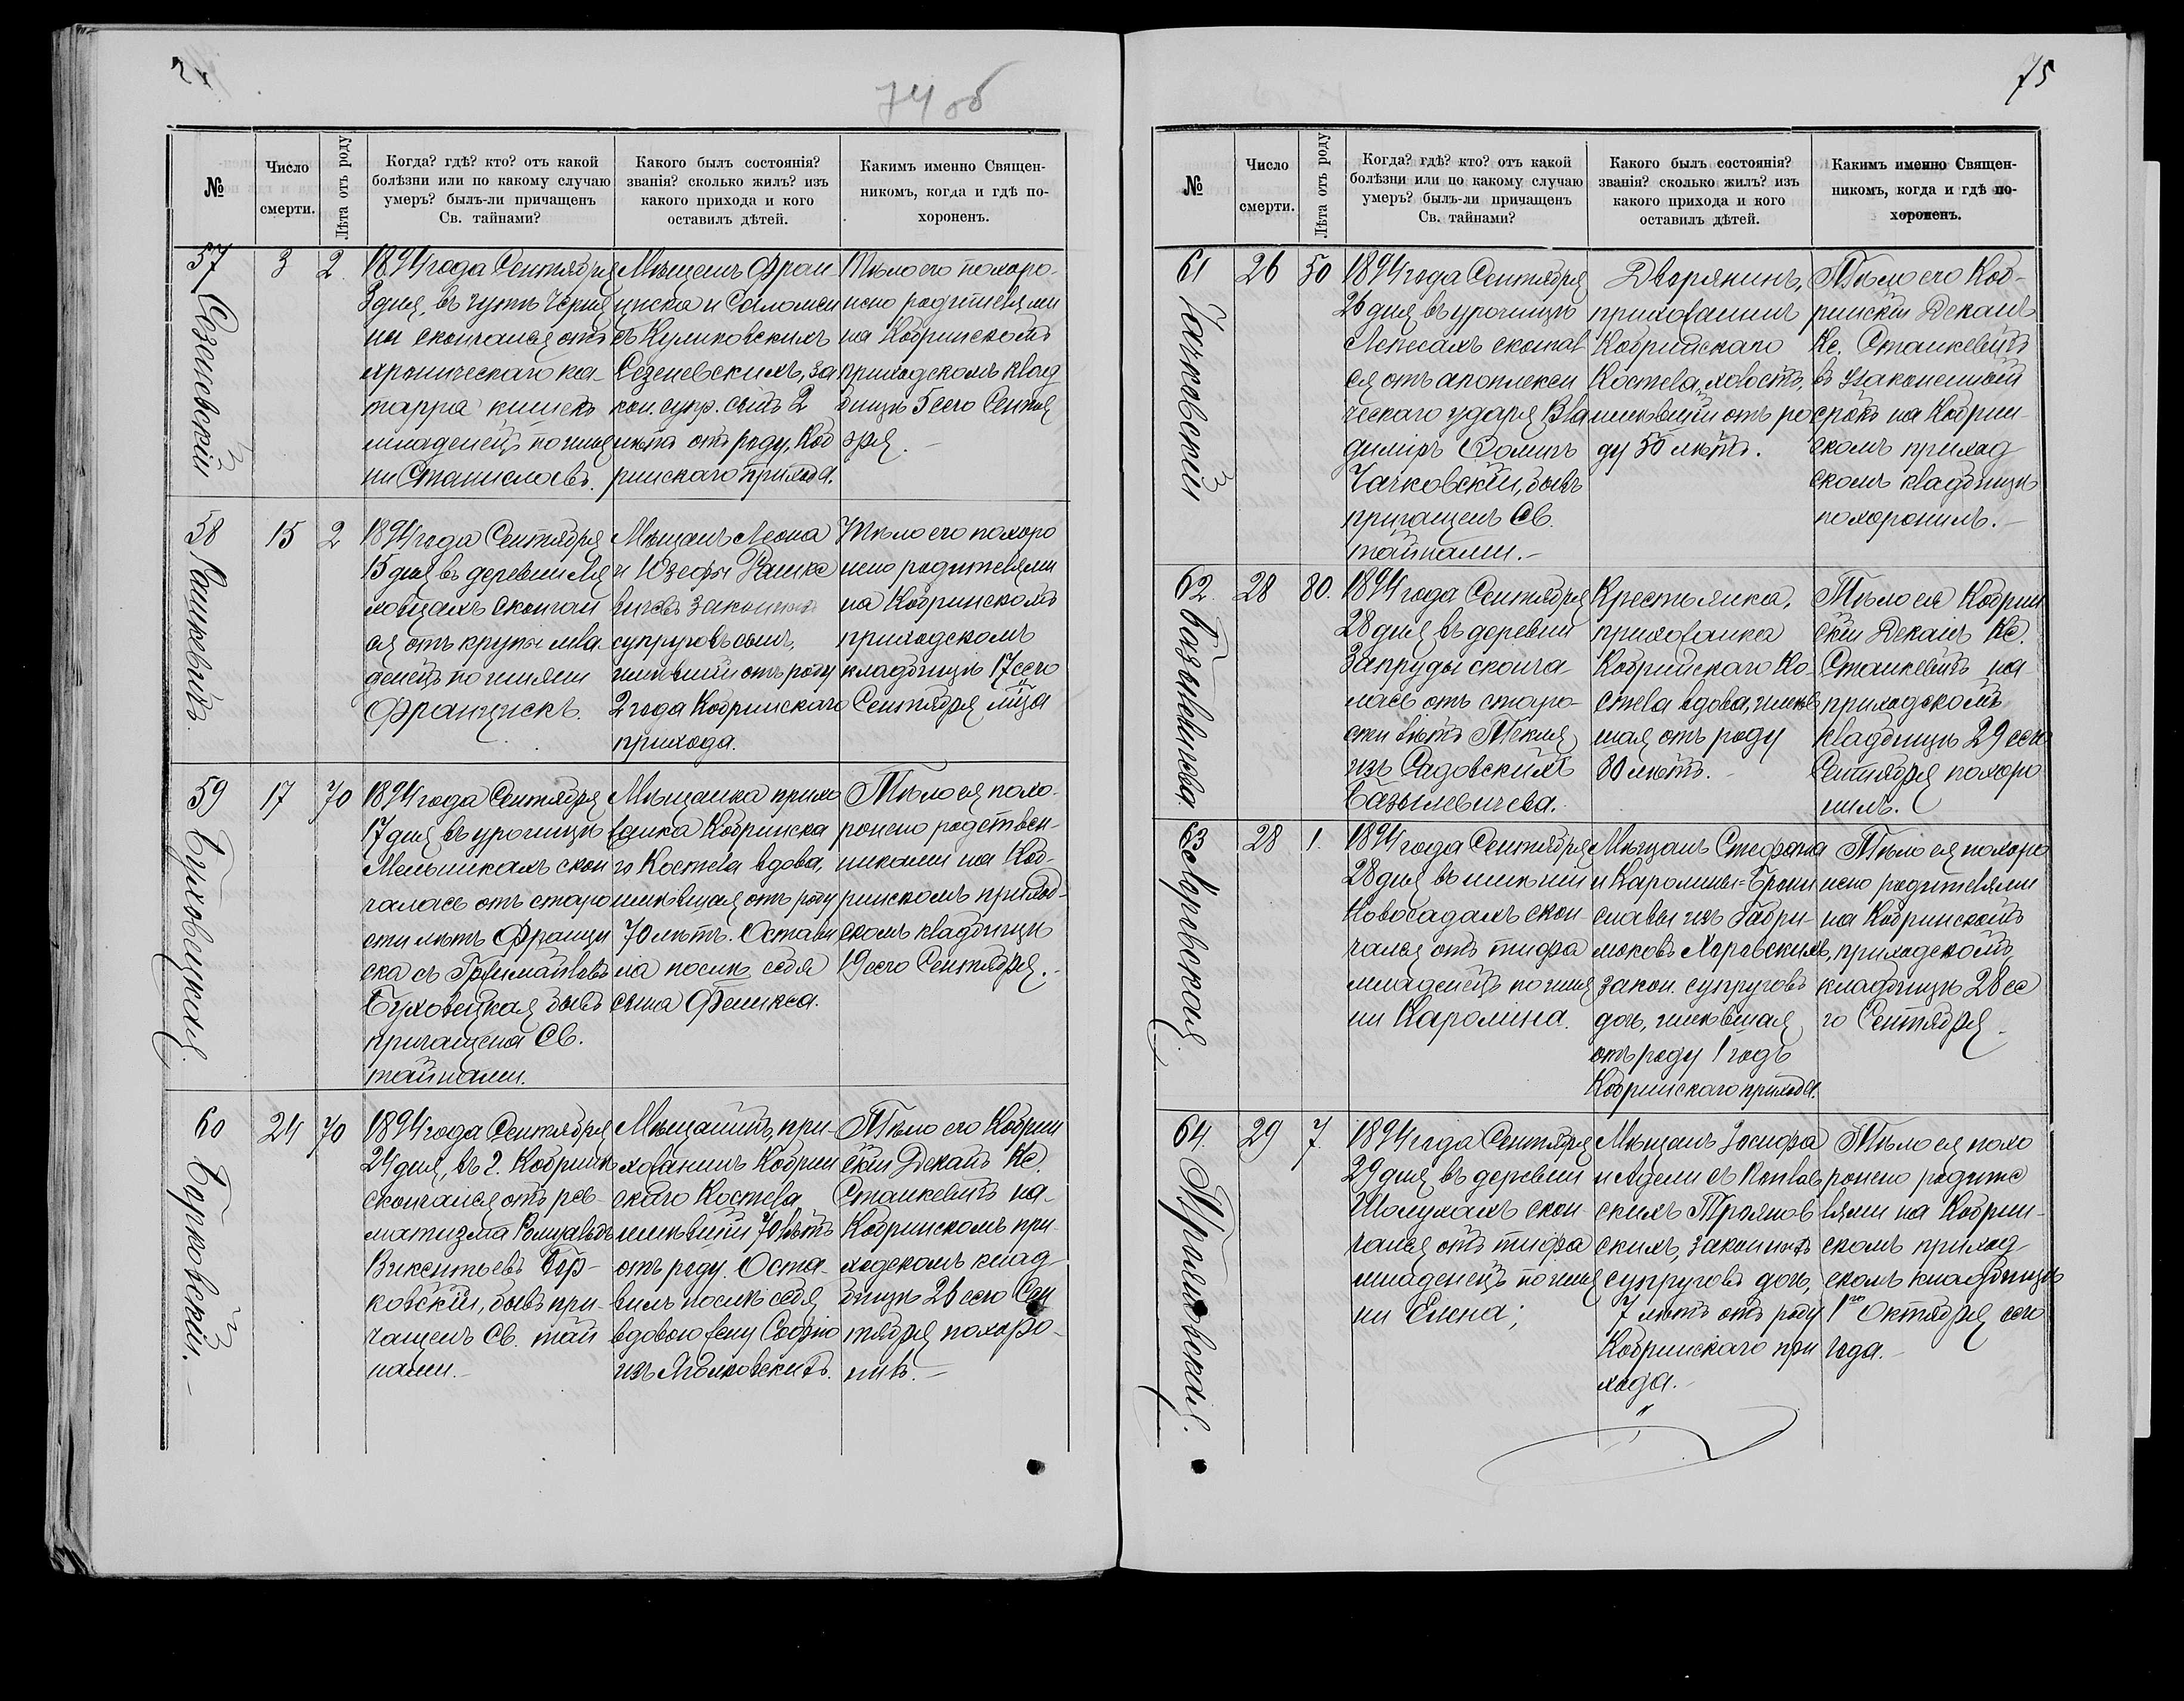 74 об
№
Число
смерти.
Лѣта отъ роду
Когда? гдѣ? кто? отъ какой
болѣзни или по какому случаю
умеръ? былъ-ли причащенъ
Св. тайнами?
Какого былъ состоянія?
званія? сколько жилъ? изъ
какого прихода и кого
оставилъ дѣтей.
Какимъ именно Священ-
никомъ, когда и гдѣ по-
хороненъ.
57
Сезеневскій
3
2
1894 года Сентября
3 дня, въ
скончался отъ
хроническаго ка-
тарра кишекъ
младенецъ по имя
ни Станиславъ.
Мѣщанъ Фран
циска и Саломеи
съ Куликовскихъ
Сезеневскихъ, за
кон. супр. сынъ 2
лѣтъ отъ роду, Коб
ринскаго прихода.
Тѣло его похоро-
нено родителями
на Кобринскомъ
приходскомъ клад
бищѣ 5 сего Сентя
бря.
58
Рашкевичъ
15
2
1894 года Сентября
15 дня въ деревни Ля
ховцахъ скончал
ся отъ крупы мла-
денецъ по имяни
Францискъ.
Мѣщанъ Леона
и Юзефы Рашке
вичовъ законныхъ
супруговъ сынъ,
имѣвшій отъ роду
2 года Кобринскаго
прихода.
Тѣло его похоро
нено родителями
на Кобринскомъ
приходскомъ
кладбищѣ 17 сего
Сентября м-ца
59
Буховецкая.
17
70
1894 года Сентября
17 дня въ урочищѣ
Мельникахъ скон
чалась отъ старо
сти лѣтъ Франци
ска съ
Буховецкая бывъ
причащена Св.
тайнами.
Мѣщанка прихо
жанка Кобринска
го Костела вдова,
имѣвшая отъ роду
70 лѣтъ. Остави
ла послѣ себя
сына Феликса.
Тѣло ея похо-
ронено родствен-
никами на Коб-
ринскомъ приход-
скомъ кладбищѣ
19 сего Сентября.
60
Борковскій.
24
70
1894 года Сентября
24 дня, въ г. Кобринѣ
скончался отъ рев-
матизма Ромуальдъ
Викентьевъ Бор-
ковскій, бывъ при-
чащенъ Св. тай
нами.
Мѣщанинъ, при-
хожанинъ Кобрин
скаго Костела
имѣвшій 70 лѣтъ
отъ роду. Оста-
вилъ послѣ себя
вдовою жену Софію
изъ Яголковскихъ.
Тѣло его Кобрин
скій Деканъ Кс.
Станкевичъ на-
Кобринскомъ при-
ходскомъ клад-
бищѣ 26 сего Сен
тября похоро-
нилъ.
75
№
Число
смерти.
Лѣта отъ роду
Когда? гдѣ? кто? отъ какой
болѣзни или по какому случаю
умеръ? былъ-ли причащенъ
Св. тайнами?
Какого былъ состоянія?
званія? сколько жилъ? изъ
какого прихода и кого
оставилъ дѣтей.
Какимъ именно Священ-
никомъ, когда и гдѣ по-
хороненъ.
61
Чачковскій
26
50
1894 года Сентября
26 дня въ урочищѣ
Лепесахъ скончал
ся отъ апоплекси
ческаго ударя Вла
диміръ
Чачковскій, бывъ
причащенъ Св.
тайнами.
Дворянинъ,
прихожанинъ
Кобринскаго
Костела, холостъ,
имѣвшій отъ ро
ду 50 лѣтъ.
Тѣло его Коб-
ринскій Деканъ
Кс. Станкевичъ
въ узаконенный
срокъ на Кобрин
скомъ приход
скомъ кладбищѣ
похоронилъ.
62.
Базылевичева
28
80.
1894 года Сентября
28 дня въ деревни
Запруды сконча-
лась отъ старо-
сти лѣтъ Текля
изъ Садовскихъ
Базылевичева.
Крестьянка,
прихожанка
Кобринскаго Ко-
стела вдова, имѣв
шая отъ роду
80 лѣтъ.
Тѣло ея Кобрин
скій Деканъ Кс.
Станкевичъ на-
приходскомъ
кладбищѣ 29 сего
Сентября похоро
нилъ.
63
Хоровская
28
1.
1894 года Сентября
28 дня въ имѣніи
Новосадахъ скон-
чалася отъ тифа
младенецъ по имя
ни Каролина.
Мѣщанъ Стефана
и Каролины=Брони
славы изъ Габри-
люковъ Харавскихъ,
закон. супруговъ
дочь, имѣвшая
отъ роду 1 годъ
Кобринскаго прихода.
Тѣло ея похоро
нено родителями
на Кобринскомъ
приходскомъ
кладбищѣ 28 се
го Сентября
64.
Трояновская.
29
7.
1894 года Сентября
29 дня въ деревни
скон
чалася отъ тифа
младенецъ по имя
ни Елена;
Мѣщанъ Іосифа
и Адели съ
скихъ Троянов
скихъ, законныхъ
супруговъ дочь,
7 лѣтъ отъ роду
Кобринскаго при
хода.
Тѣло ея похо
ронено родите
лями на Кобрин-
скомъ приход
скомъ кладбищѣ
1го Октября сего
года.